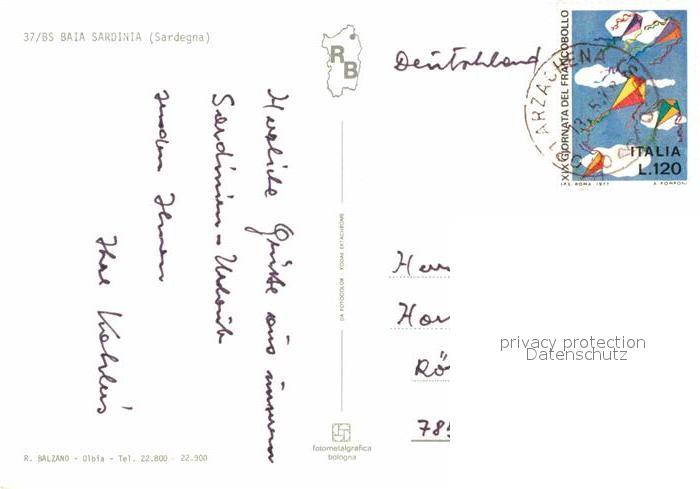 37/BS BAIA SARDINIA (Sardegna)
Herzliche Grüsse aus unserem
Sardinien-Urlaub
senden Ihnen
Ihre
R. BALZANO - Olbia - Tel. 22.800 - 22.900
RB
DA FOTOCOLOR KODAK EKTACHROME
fotometalgrafica
bologna
Deutschland
ARZACHENA
XIX GIORNATA DEL FRANCOBOLLO
ITALIA
L.120
I.P.S. ROMA 1977
A. POMPONI
Her
Hor
Rö
78
privacy protection
Datenschutz